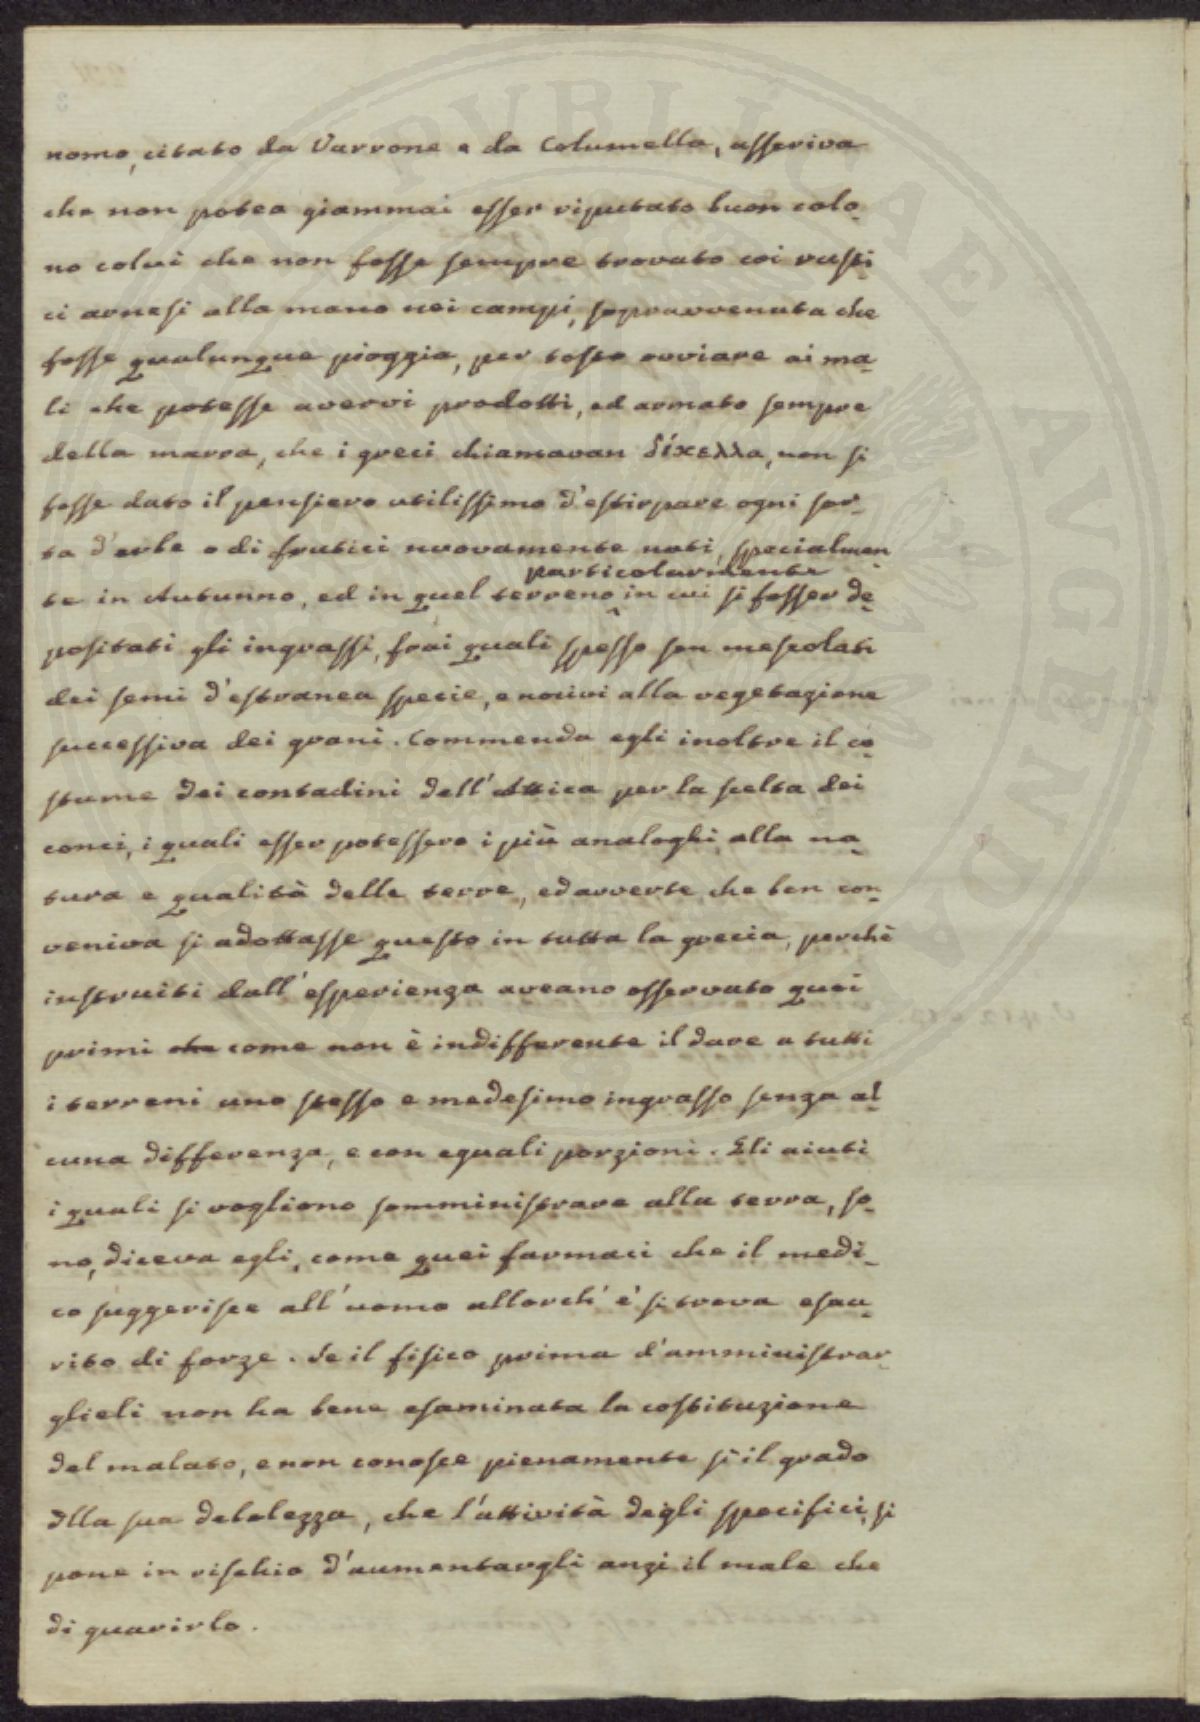 nomo, citato da Varrone e da Columella, asseriva
che non potea giammai esser riputato buon colo-
no colui che non fosse sempre trovato coi rusti-
ci arnesi alla mano nei campi, sopravvenuta che
fosse qualunque pioggia, per tosto ovviare ai ma-
li che potesse avervi prodotti, ed armato sempre
della marra, che i greci chiamavan δίχελλα, non si
fosse dato il pensiero utilissimo d'estirpare ogni sor-
ta d'erbe o di frutici nuovamente nati, specialmen-
particolarmente
te in Autunno, ed in quel terreno in cui si fosser de-
positati gli ingrassi, frai quali spesso son mescolati
dei semi d'estranea specie, e nocivi alla vegetazione
successiva dei grani. Commenda egli inoltre il co-
stume dei contadini dell'Attica per la scelta dei
conci, i quali esser potessero i più analoghi alla na-
tura e qualità delle terre, ed avverte che ben con-
veniva si adottasse questo in tutta la grecia, perchè
instruiti dall'esperienza aveano osservato quei
primi che come non è indifferente il dare a tutti
i terreni uno stesso e medesimo ingrasso senza al-
cuna differenza, e con eguali porzioni. Gli aiuti
i quali si vogliono somministrare alla terra, so-
no, diceva egli, come quei farmaci che il medi-
co suggerisce all'uomo allorch'è si trova esau-
rito di forze. Se il fisico prima d'amministrar-
glieli non ha bene esaminata la costituzione
del malato, e non conosce pienamente sì il grado
dlla sua debolezza, che l'attività degli specifici, si
pone in rischio d'aumentargli anzi il male che
di guarirlo.
PVBLICAE AVGENDAE